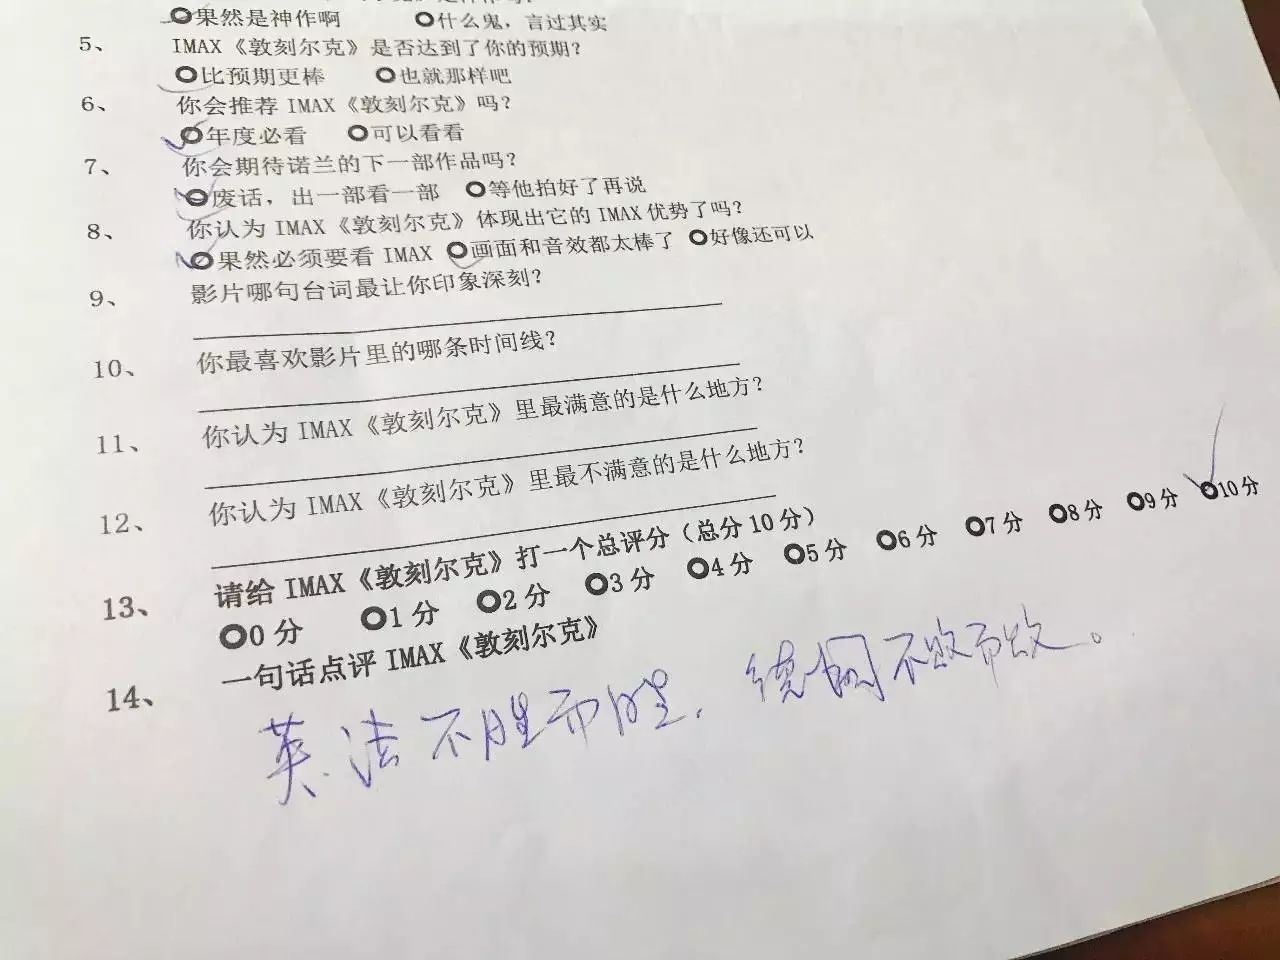 果然是神作啊 什么鬼，言过其实
5、 IMAX《敦刻尔克》是否达到了你的预期？
比预期更棒 也就那样吧
6、 你会推荐 IMAX《敦刻尔克》吗？
年度必看 可以看看
7、 你会期待诺兰的下一部作品吗？
废话，出一部看一部 等他拍好了再说
8、 你认为 IMAX《敦刻尔克》体现出它的 IMAX 优势了吗？
果然必须要看 IMAX 画面和音效都太棒了 好像还可以
9、 影片哪句台词最让你印象深刻？
10、 你最喜欢影片里的哪条时间线？
11、 你认为 IMAX《敦刻尔克》里最满意的是什么地方？
12、 你认为 IMAX《敦刻尔克》里最不满意的是什么地方？
13、 请给 IMAX《敦刻尔克》打一个总评分（总分 10 分）
0 分 1 分 2 分 3 分 4 分 5 分 6 分 7 分 8 分 9 分 10 分
14、 一句话点评 IMAX《敦刻尔克》
英.法不胜而胜，德国不败而败。